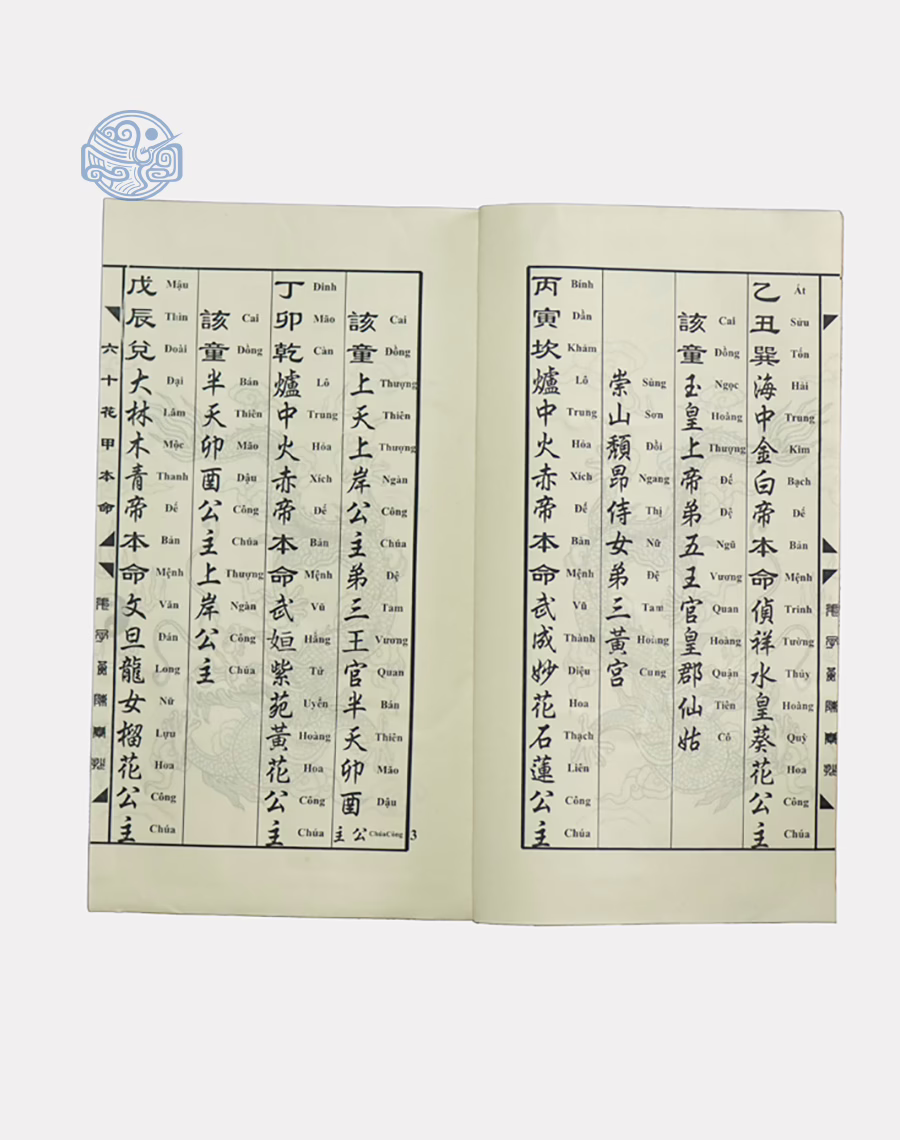 乙丑巽海中金白帝本命偵祥水皇葵花公主
Át Sửu Tốn Hải Trung Kim Bạch Đế Bản Mệnh Trinh Tường Thủy Hoàng Quỳ Hoa Công Chúa
該童玉皇上帝弟五王官皇郡仙姑
Cai Đồng Ngọc Hoàng Thượng Đế Đệ Ngũ Vương Quan Hoàng Quận Tiên Cô
崇山頽昻侍女弟三黃宮
Sùng Sơn Đồi Ngang Thị Nữ Đệ Tam Hoàng Cung
丙寅坎爐中火赤帝本命武成妙花石蓮公主
Bính Dần Khảm Lô Trung Hỏa Xích Đế Bản Mệnh Vũ Thành Diệu Hoa Thạch Liên Công Chúa
該童上天上岸公主弟三王官半天卯酉公主
Cai Đồng Thượng Thiên Thượng Ngàn Công Chúa Đệ Tam Vương Quan Bán Thiên Mão Dậu Công Chúa
丁卯乾爐中火赤帝本命武姮紫苑黃花公主
Đinh Mão Càn Lô Trung Hỏa Xích Đế Bản Mệnh Vũ Hằng Tử Uyển Hoàng Hoa Công Chúa
該童半天卯酉公主上岸公主
Cai Đồng Bán Thiên Mão Dậu Công Chúa Thượng Ngàn Công Chúa
戊辰兌大林木青帝本命文旦龍女榴花公主
Mậu Thìn Đoài Đại Lâm Mộc Thanh Đế Bản Mệnh Văn Đán Long Nữ Lựu Hoa Công Chúa
六十花甲本命
3